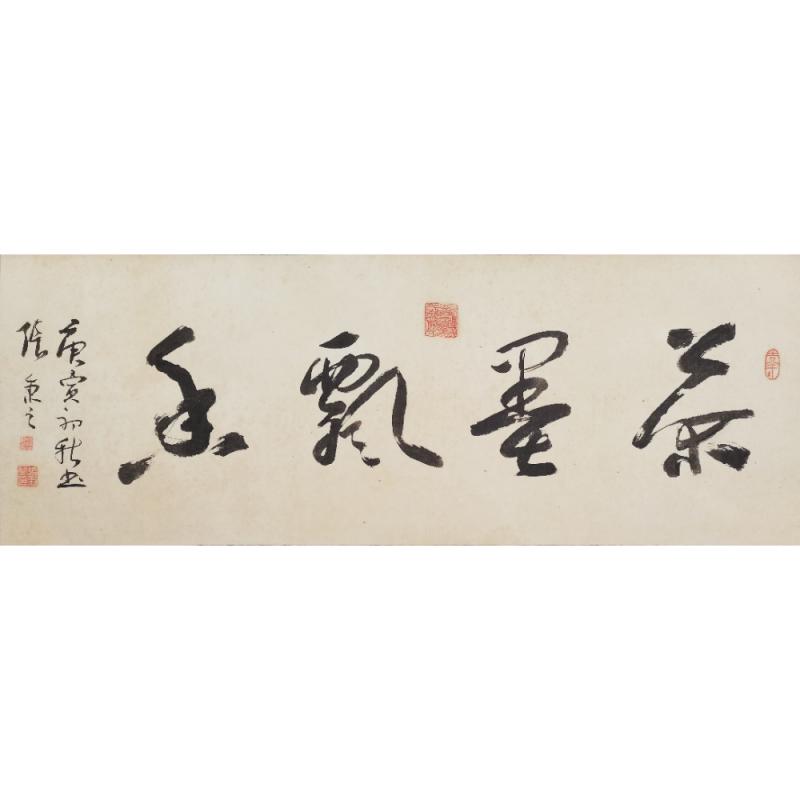 茶墨飄香
庚寅初秋書
張秉之